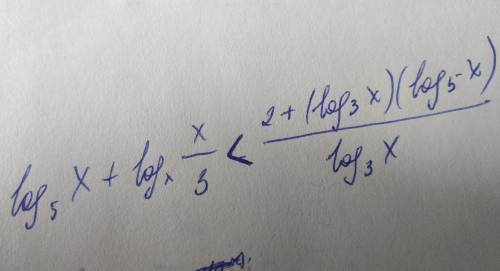 log₅ X + logₓ x/3 < 2 + (log₃ X)(log₅ X) / log₃ X